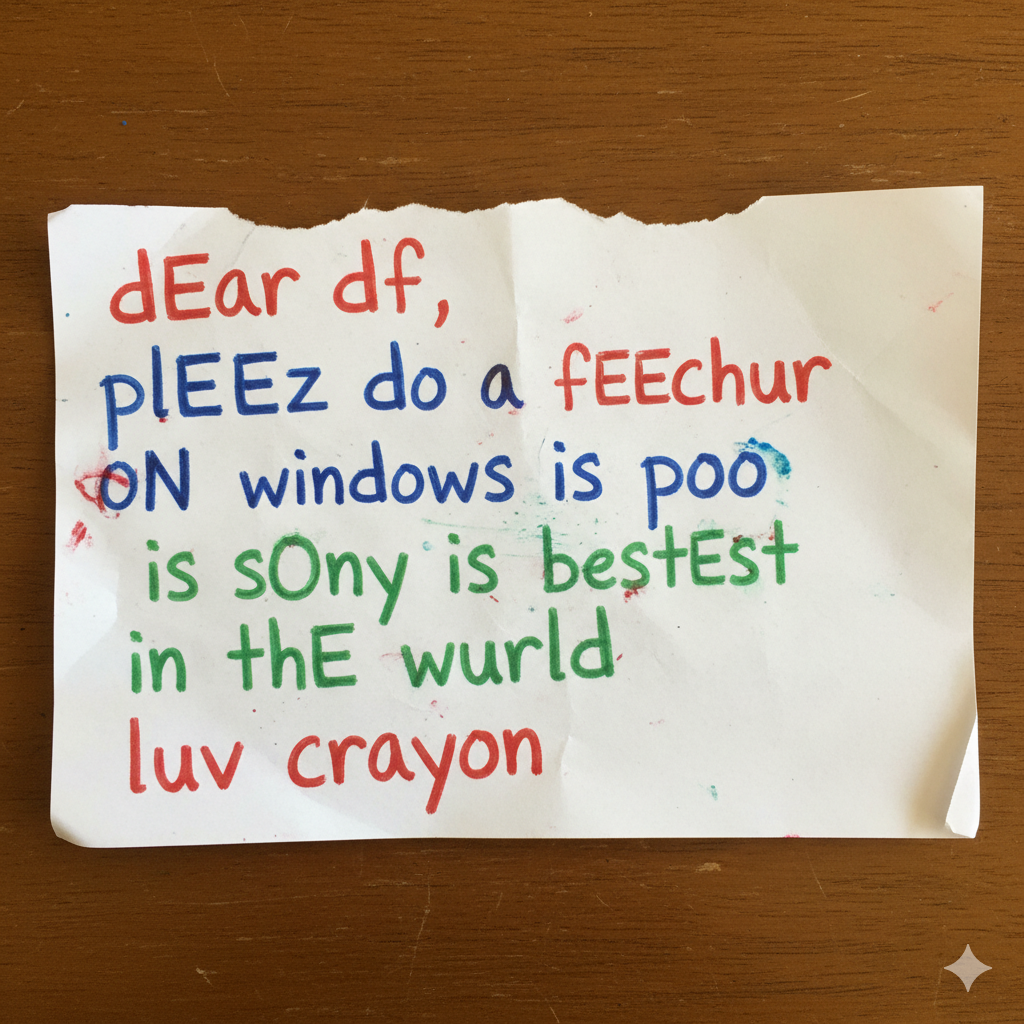 dEar df,
plEEz do a fEEchur
oN windows is poo
is sOny is bestEst
in thE wurld
luv crayon